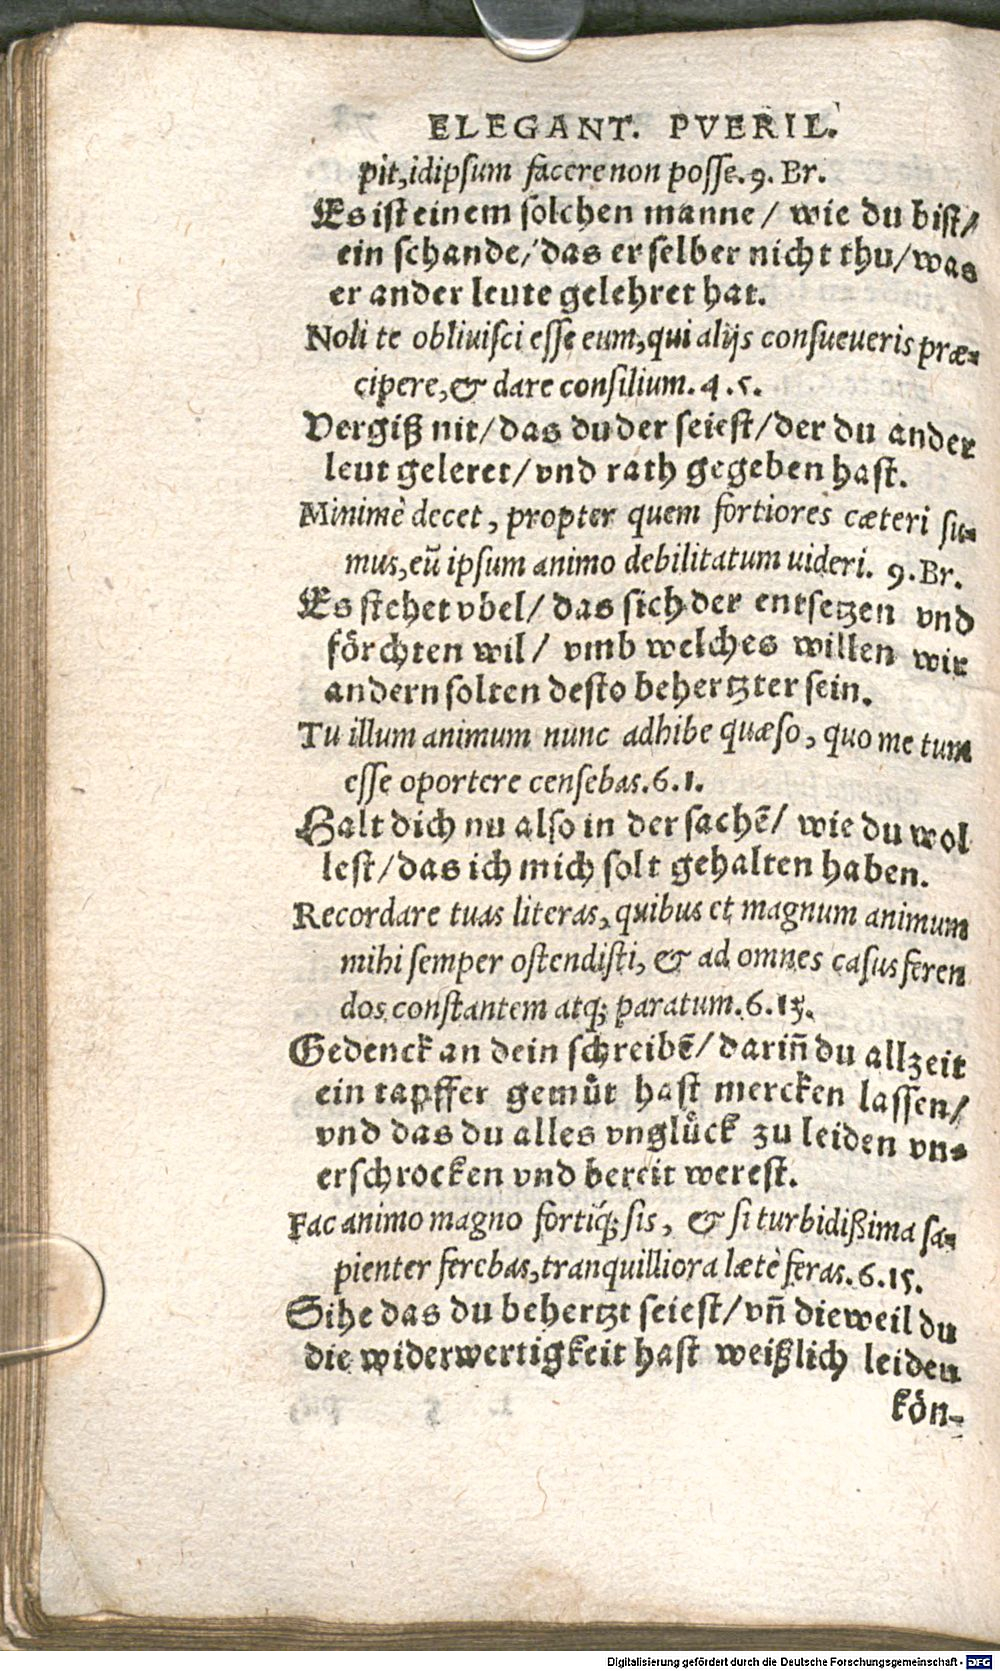 ELEGANT. PVERIL.
pit, idipsum facere non posse. 9. Br.
Es ist einem solchen manne / wie du bist /
ein schande / das er selber nicht thu / was
er ander leute gelehret hat.
Noli te obliuisci esse eum, qui alijs consueueris præ-
cipere, & dare consilium. 4. 5.
Vergiß nit / das du der seiest / der du ander
leut geleret / vnd rath gegeben hast.
Minimè decet, propter quem fortiores cæteri su-
mus, eũ ipsum animo debilitatum uideri. 9. Br.
Es stehet vbel / das sich der entsetzen vnd
förchten wil / vmb welches willen wir
andern solten desto behertzter sein.
Tu illum animum nunc adhibe quæso, quo me tum
esse oportere censebas. 6. 1.
Halt dich nu also in der sachẽ / wie du wol
lest / das ich mich solt gehalten haben.
Recordare tuas literas, quibus et magnum animum
mihi semper ostendisti, & ad omnes casus feren
dos constantem atq; paratum. 6. 15.
Gedenck an dein schreibẽ / dariñ du allzeit
ein tapffer gemůt hast mercken lassen /
vnd das du alles vnglůck zu leiden vn-
erschrocken vnd bereit werest.
Fac animo magno fortiq́; sis, & si turbidißima sa-
pienter ferebas, tranquilliora lætè feras. 6. 15.
Sihe das du behertzt seiest / vñ dieweil du
die widerwertigkeit hast weißlich leiden
kön-
Digitalisierung gefördert durch die Deutsche Forschungsgemeinschaft - DFG